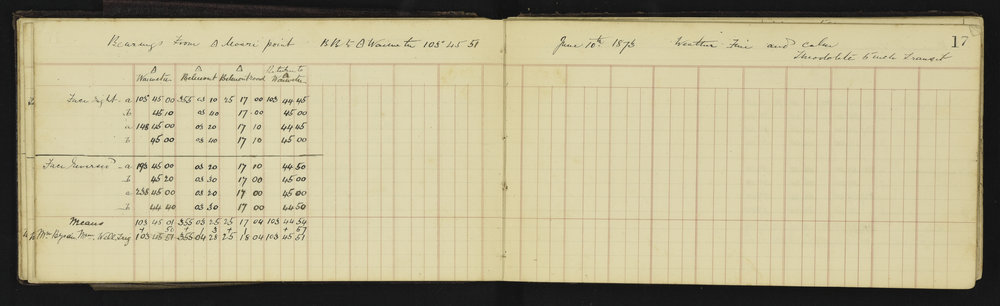 Bearings from △ Maori point B.B. to △ Wainuten 103° 45 51 June 10th 1873 Weather Fine and calm 17
Theodolite 5 inch Transit
△ △ △ Return to
Wainuten Belmont Belmont road Wainuten
Face right a 103° 45 00 355 03 10 25 17 00 103 44 45
b 45 10 03 40 17 00 45 00
a 148 45 00 03 20 17 10 44 45
b 45 00 03 40 17 10 45 00
Face reversed a 193 45 00 03 20 17 10 44 50
b 45 20 03 30 17 00 45 00
a 238 45 00 03 20 17 00 45 00
b 44 40 03 30 17 00 44 50
Means 103 45 01 355 03 25 25 17 04 103 44 54
+ 50 + 1 3 + 1 + 57
103 45 51 355 04 28 25 18 04 103 45 51